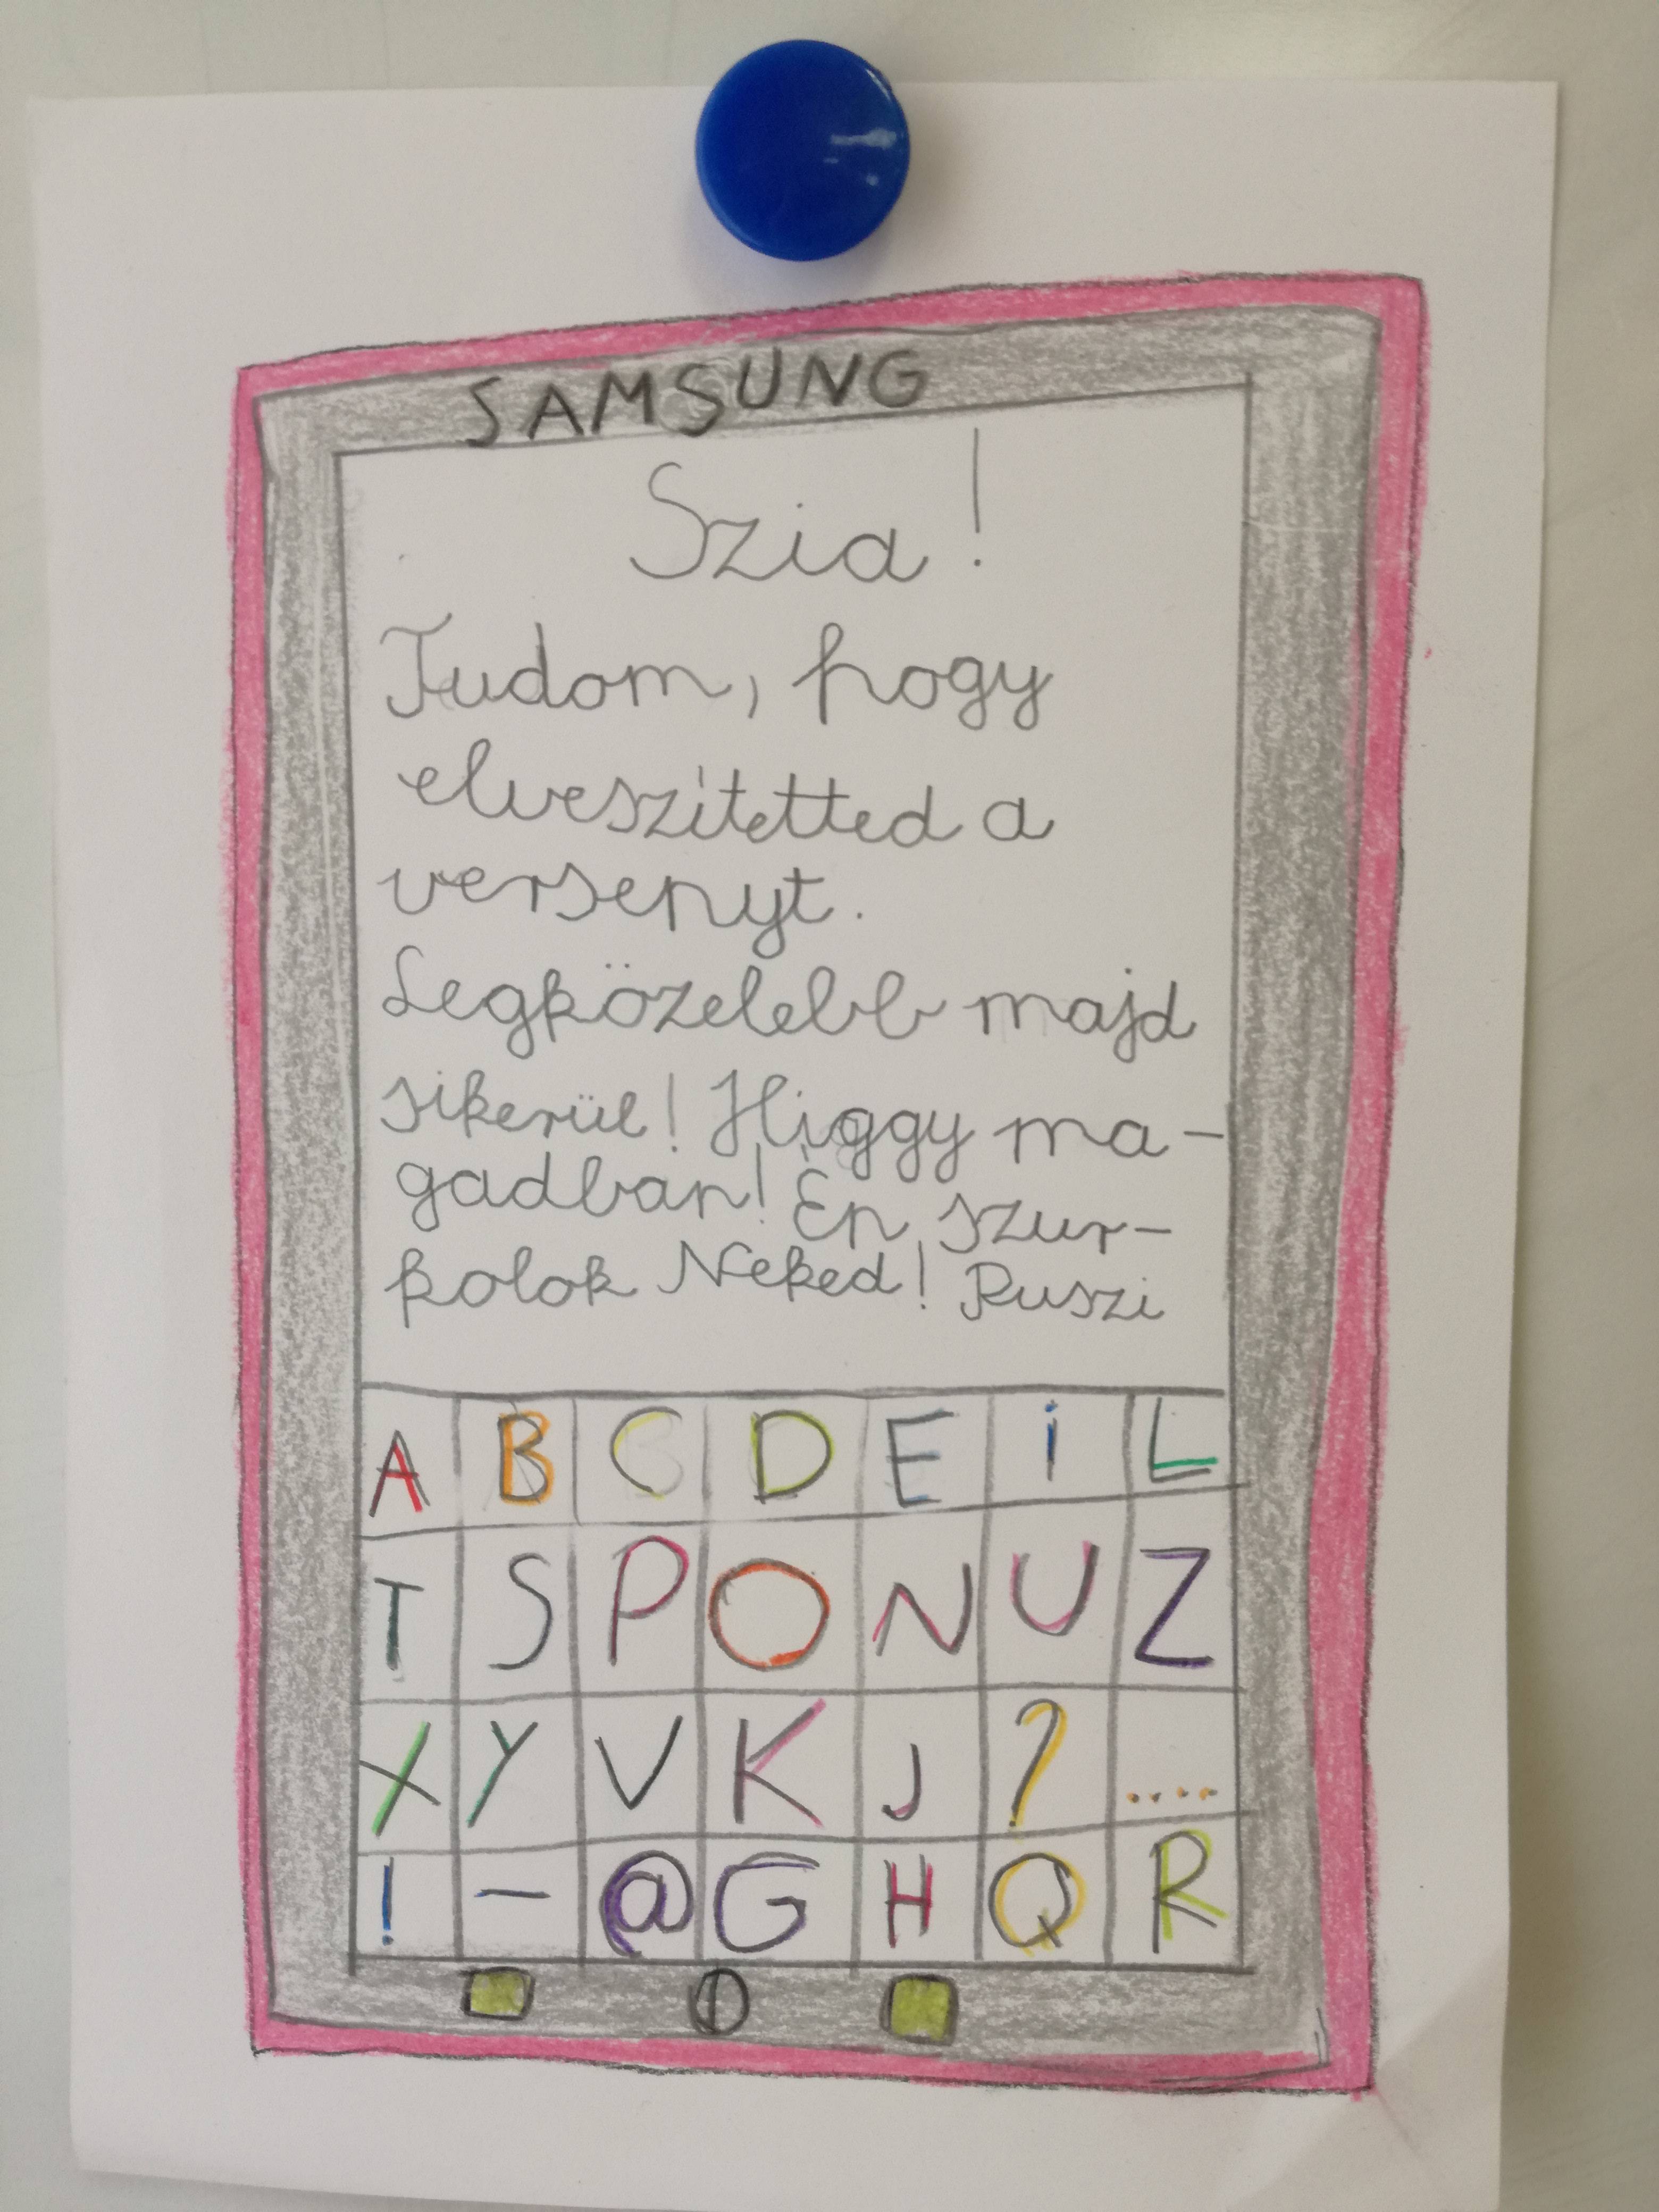 SAMSUNG
Szia!
Tudom, hogy
elveszitetted a
versenyt.
Legközelebb majd
sikerül! Higgy ma-
gadban! Én szur-
kolok Neked! Puszi
A B C D E i L
T S P O N U Z
X Y V K J ? ....
! - @ G H Q R